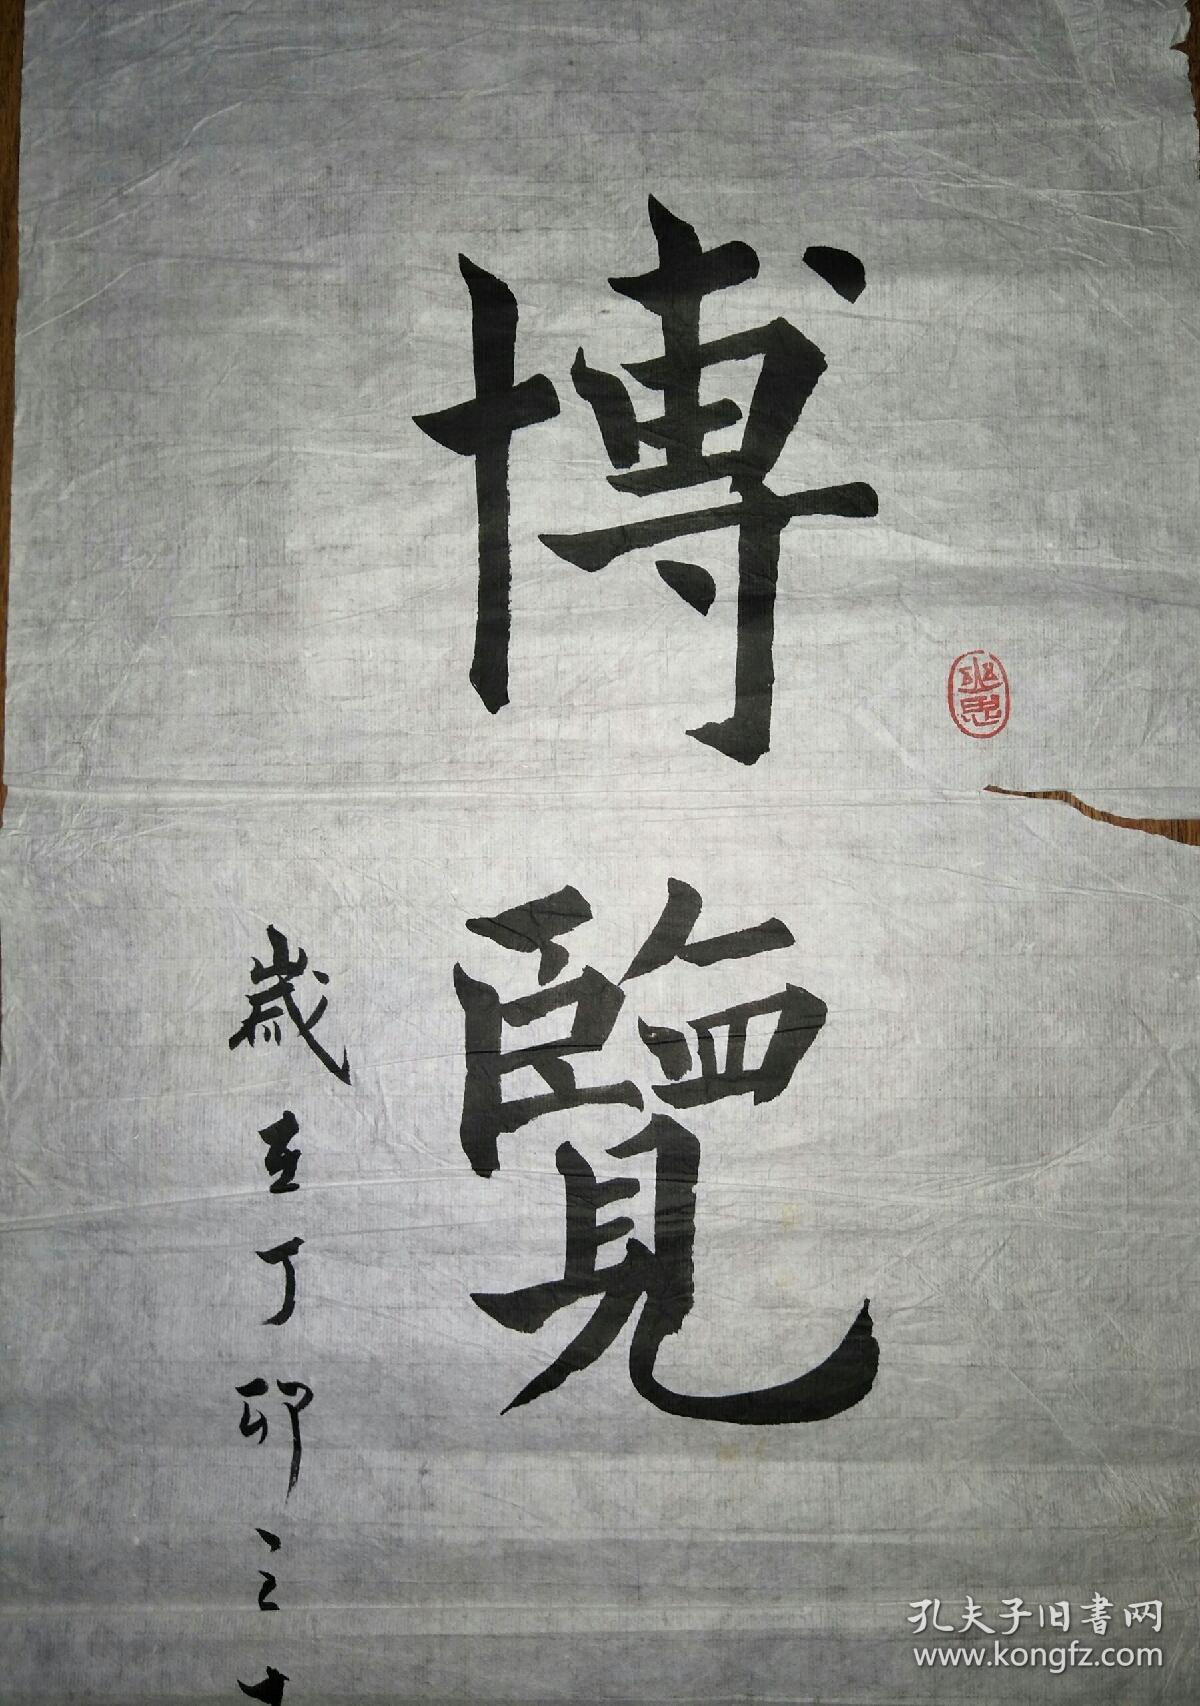 博覽
歲在丁卯之
孔夫子旧書网
www.kongfz.com